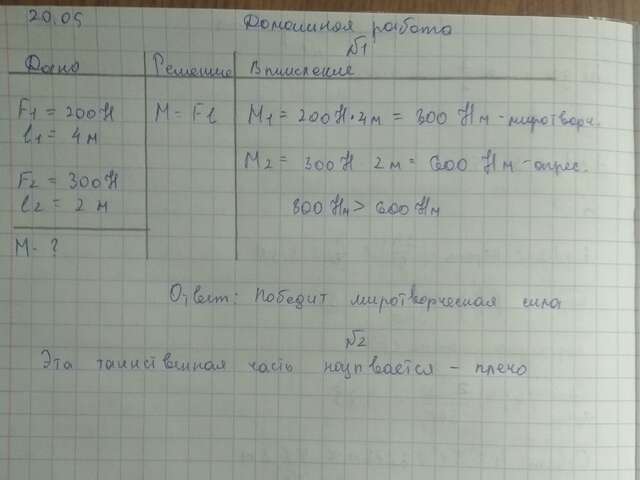 20.05 Домашняя работа
№1
Дано Решение Вычисление
F1 = 200 Н M = Fl M1 = 200 Н · 4 м = 800 Н м - миротворч.
l1 = 4 м
M2 = 300 Н 2 м = 600 Н м - агрес.
F2 = 300 Н
l2 = 2 м 800 Нм > 600 Нм
M - ?
Ответ: Победит миротворческая сила
№2
Эта таинственная часть называется - плечо